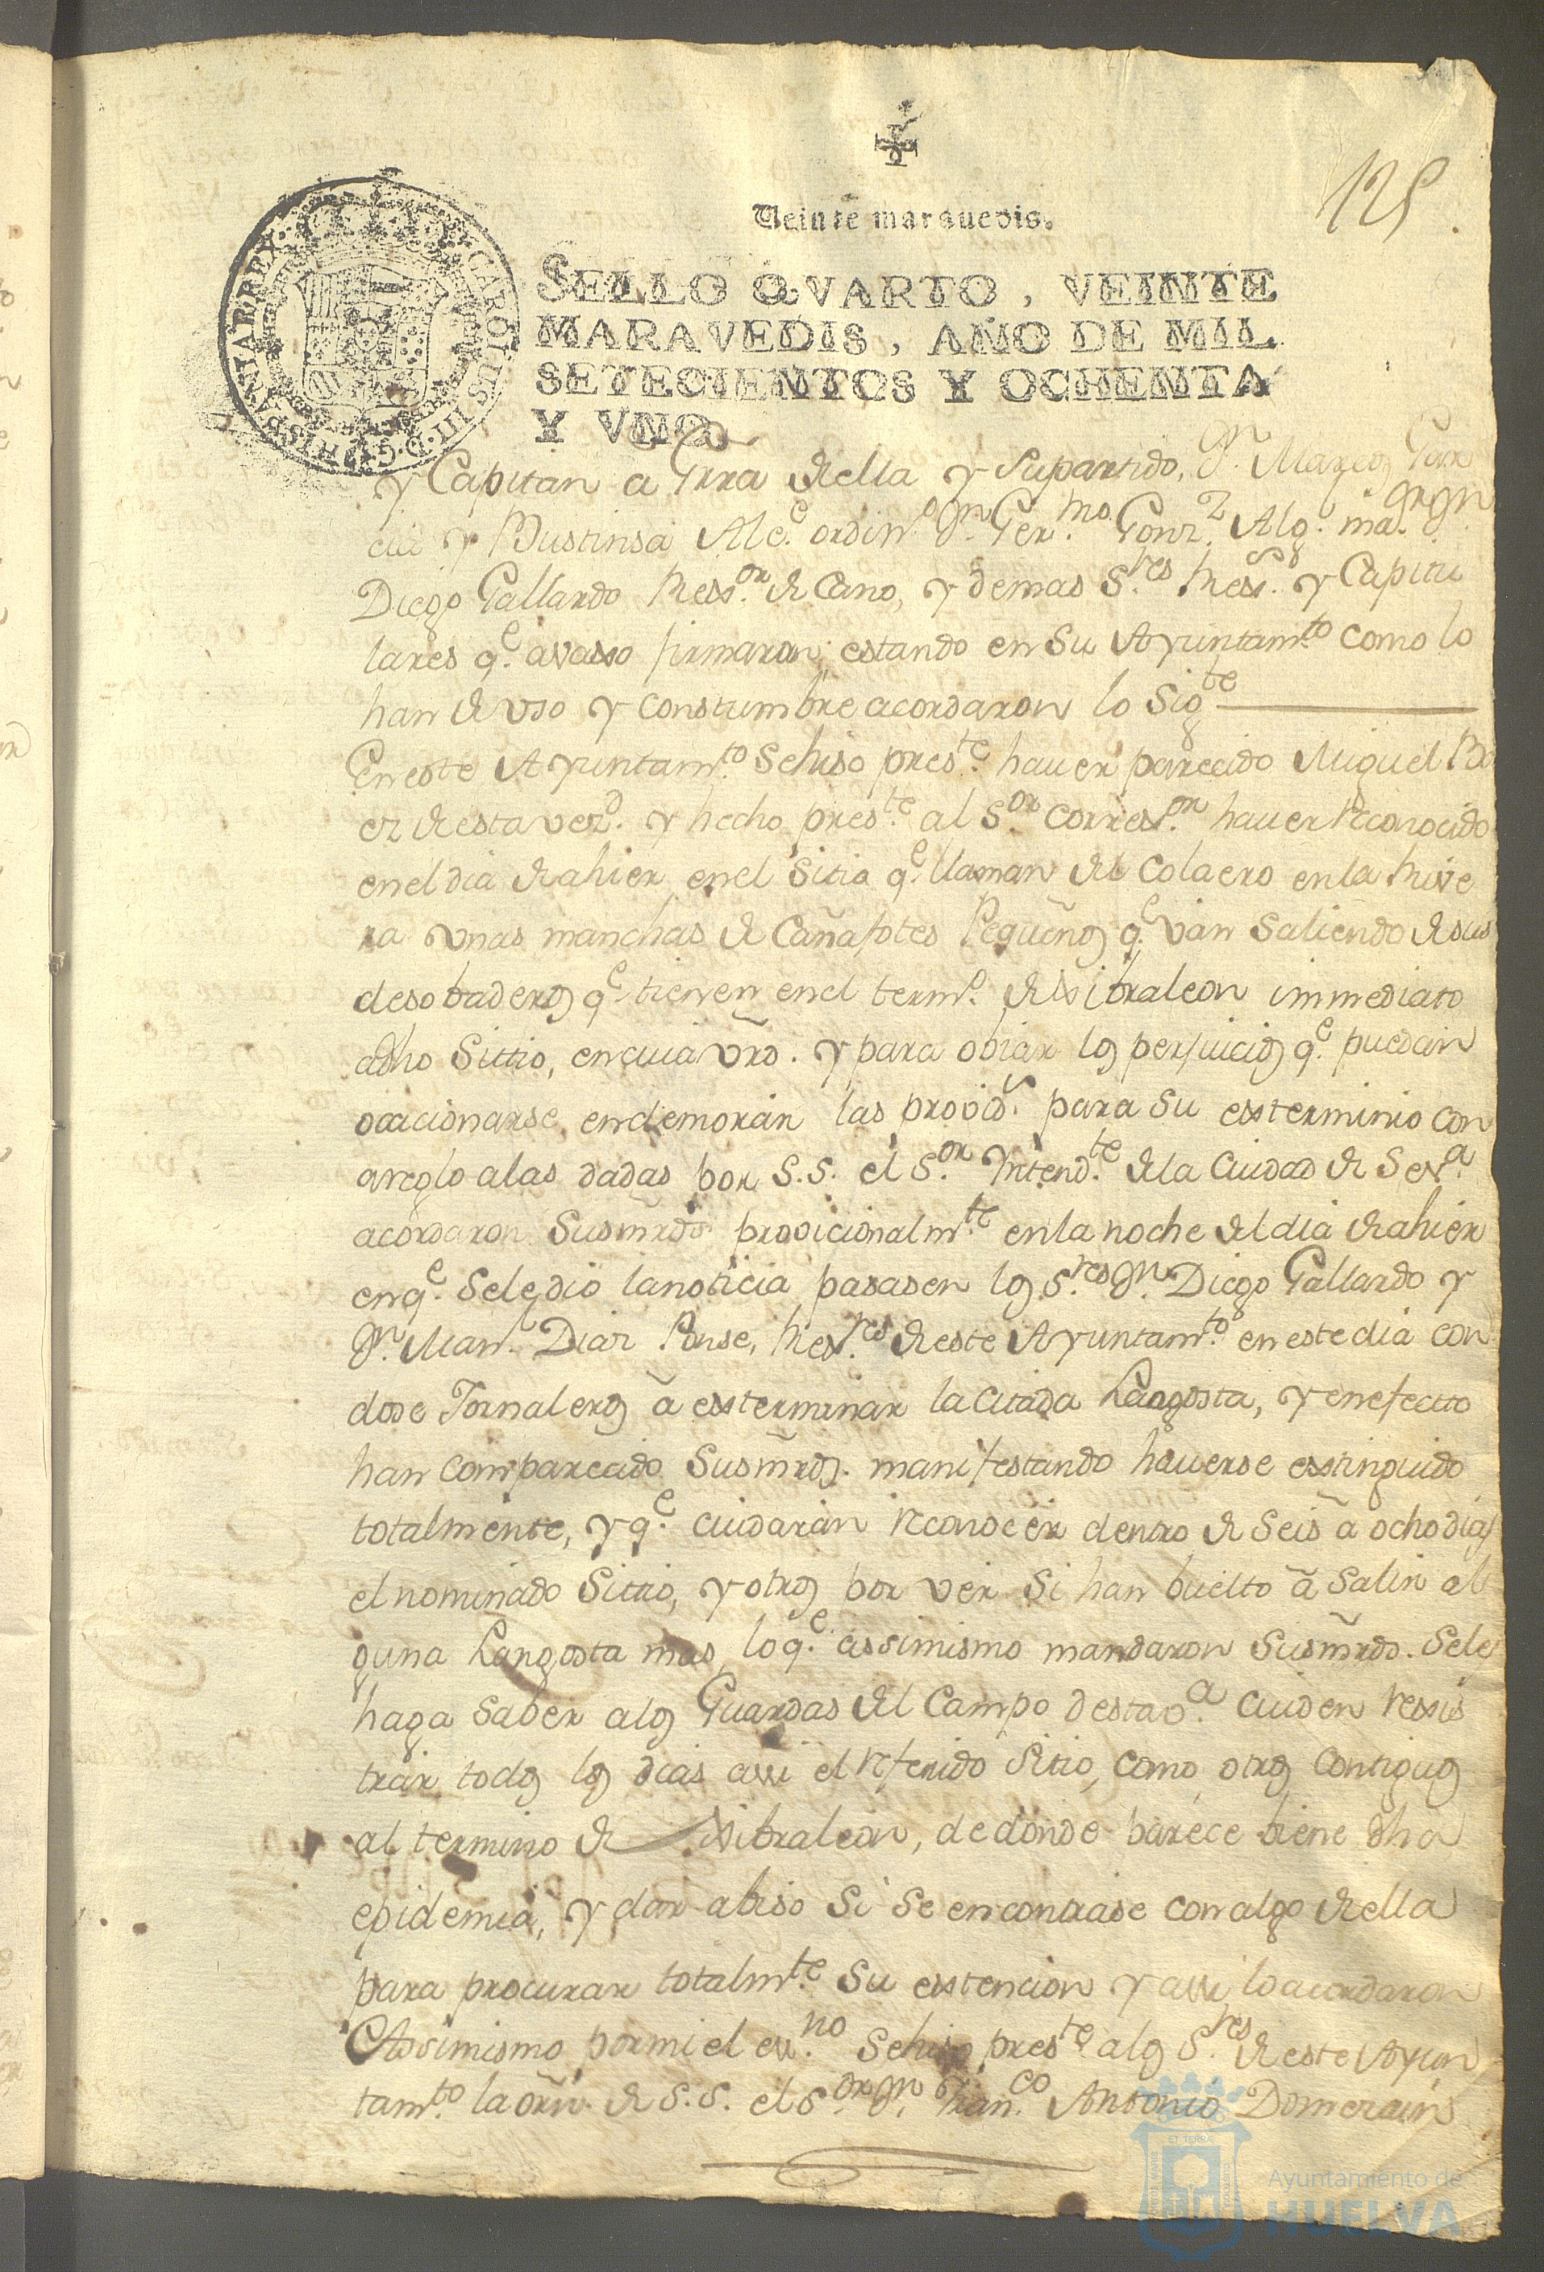 125
Veinte maravedis.
SELLO QVARTO, VEINTE
MARAVEDIS, AÑO DE MIL
SETECIENTOS Y OCHENTA
Y VNO.
CAROLUS III D G HISPANIAR REX
y Capitan a Grra della y su partido, Dn. Marcos Gar
cia y Bustinsa Alce. ordino. Dn. Germo. Gonz. Algl. mar. Dn.
Diego Gallardo Rexor. de Cano, y demas Sres. Rexs. y Capitu
lares qe. avaxo firmaron estando en su Ayuntamto. como lo
han de uso y constumbre acordaron lo sigte
En este Ayuntamto. se hiso preste. haver parecido Miguel Ba
ez de esta vezd. y hecho preste. al Sor. Correxor. haver reconocido
en el dia de ahier en el sitio qe. llaman del Colaero en la Rive
ra unas manchas de Cañafotes Pequeños qe. van saliendo de sus
desobaderos qe. tienen en el termo. de Xibraleon immediato
a dho Sittio, en cuia vrd. y para obiar los perjuicios qe. puedan
ocacionarse en demorar las provids. para su exterminio con
areglo a las dadas por S.S. el Sor. Yntendte. de la Ciudad de Seva.
acordaron Susmrds provicionalmte. en la noche del dia de ahier
en qe. se le dio la noticia pasasen los Sres. Dn. Diego Gallardo y
Dn. Manl. Diaz Ponse, Rexres. de este Ayuntamto. en este dia con
dose Jornaleros â exterminar la citada Langosta, y en efecto
han comparecido Susmrds. manifestando haverse extinguido
totalmente, y qe. cuidarán reconocer dentro de seis â ocho dias
el nominado Sittio, y otros por ver si han buelto â salir al
guna Langosta mas, lo qe. assimismo mandaron Susmrds. se les
haga saber a los Guardas del Campo de sta va. cuiden rexis
trar todos los dias assi el referido Sitio, como otros contiguos
al termino de Xibraleon, de donde parece biene dha
epidemia, y dar abiso si se encontrase con algo de ella
para procurar totalmte. su extencion y assi lo acordaron
Assimismo por mi el esno. se hiso preste. a los Sres. de este Ayun
tamto. la orn. de S.S. el Sor. Dn. Franco. Antonio Domezain
Ayuntamiento de
HUELVA